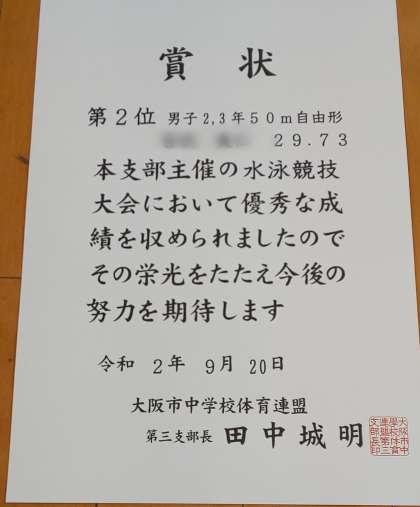 賞 状
第2位 男子2,3年50m自由形
29.73
本支部主催の水泳競技
大会において優秀な成
績を収められましたので
その栄光をたたえ今後の
努力を期待します
令和 2年 9月 20日
大阪市中学校体育連盟
第三支部長 田中城明